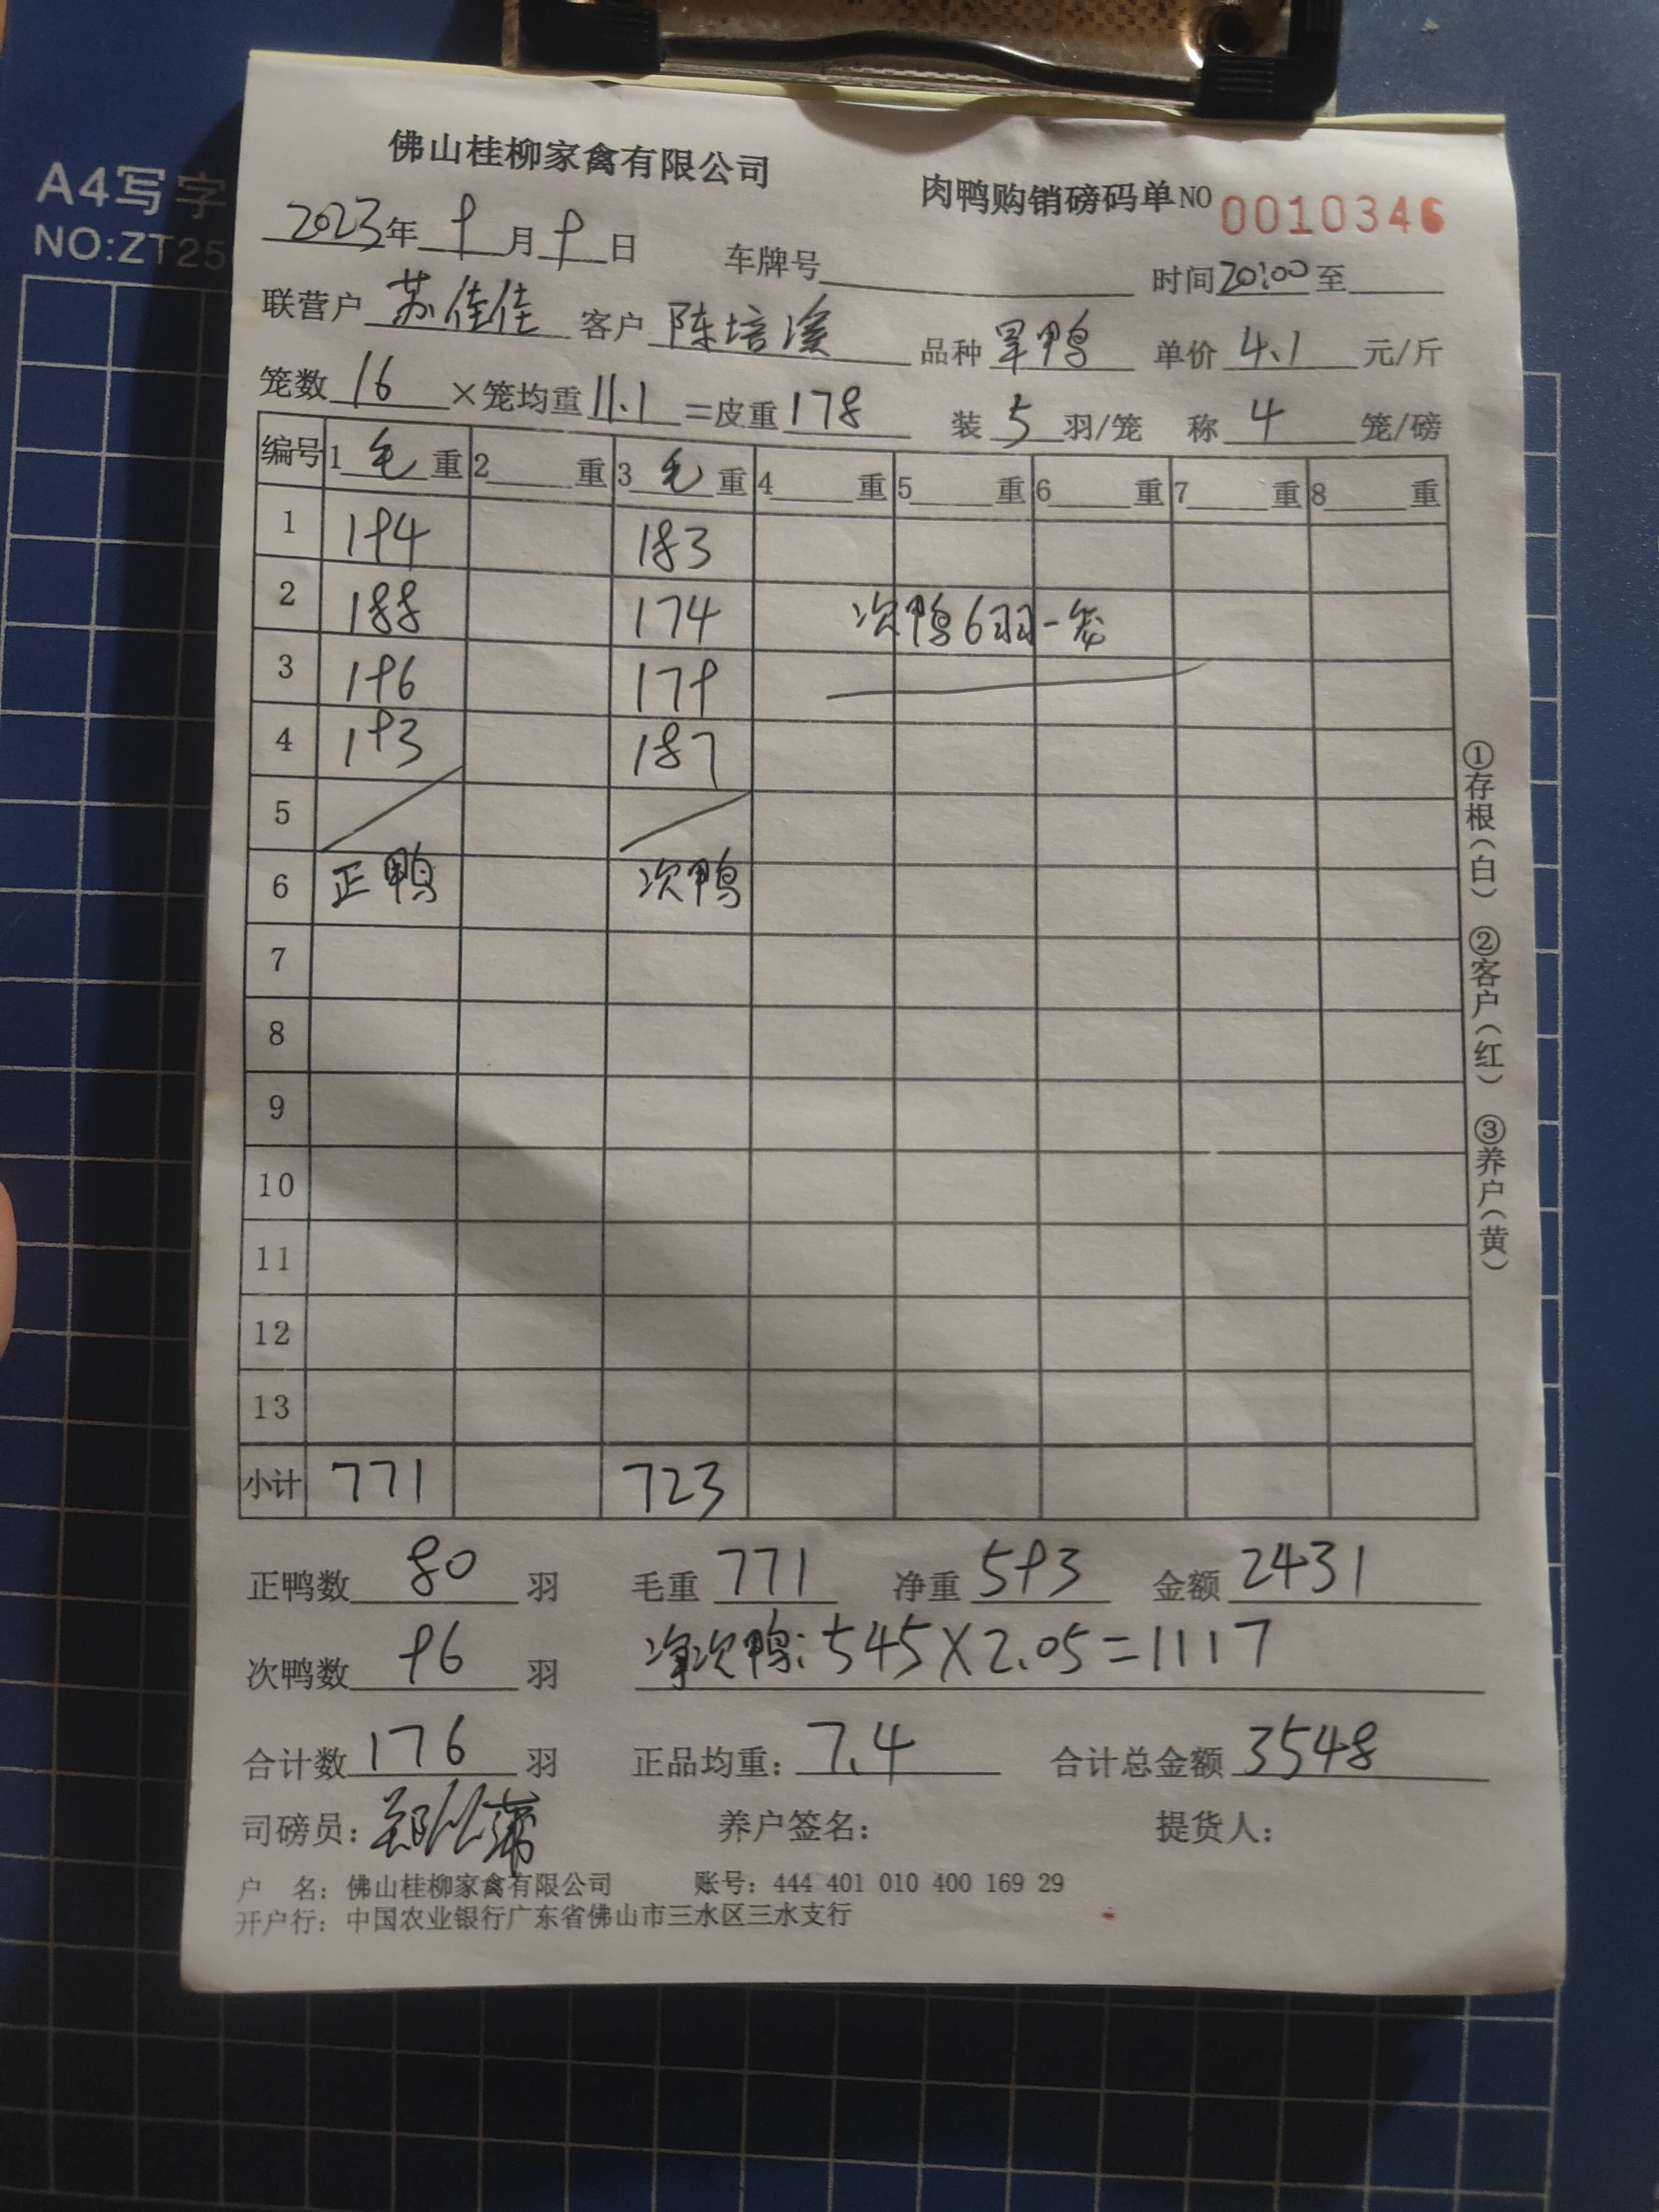 A4写字
NO:ZT25
佛山桂柳家禽有限公司
肉鸭购销磅码单NO 0010346
2023年 9 月 9 日 车牌号 时间20:00至
联营户 苏佳佳 客户 陈培溪 品种 旱鸭 单价 4.1 元/斤
笼数 16 ×笼均重 11.1 =皮重 178 装 5 羽/笼 称 4 笼/磅
编号 1 毛 重 2 重 3 毛 重 4 重 5 重 6 重 7 重 8 重
1 194 183
2 188 174 次鸭6羽一笼
3 196 179
4 193 187
5
6 正鸭 次鸭
7
8
9
10
11
12
13
小计 771 723
正鸭数 80 羽 毛重 771 净重 593 金额 2431
次鸭数 96 羽 净次鸭:545×2.05=1117
合计数 176 羽 正品均重: 7.4 合计总金额 3548
司磅员: 养户签名: 提货人:
户 名: 佛山桂柳家禽有限公司 账号: 444 401 010 400 169 29
开户行: 中国农业银行广东省佛山市三水区三水支行
①存根(白) ②客户(红) ③养户(黄)